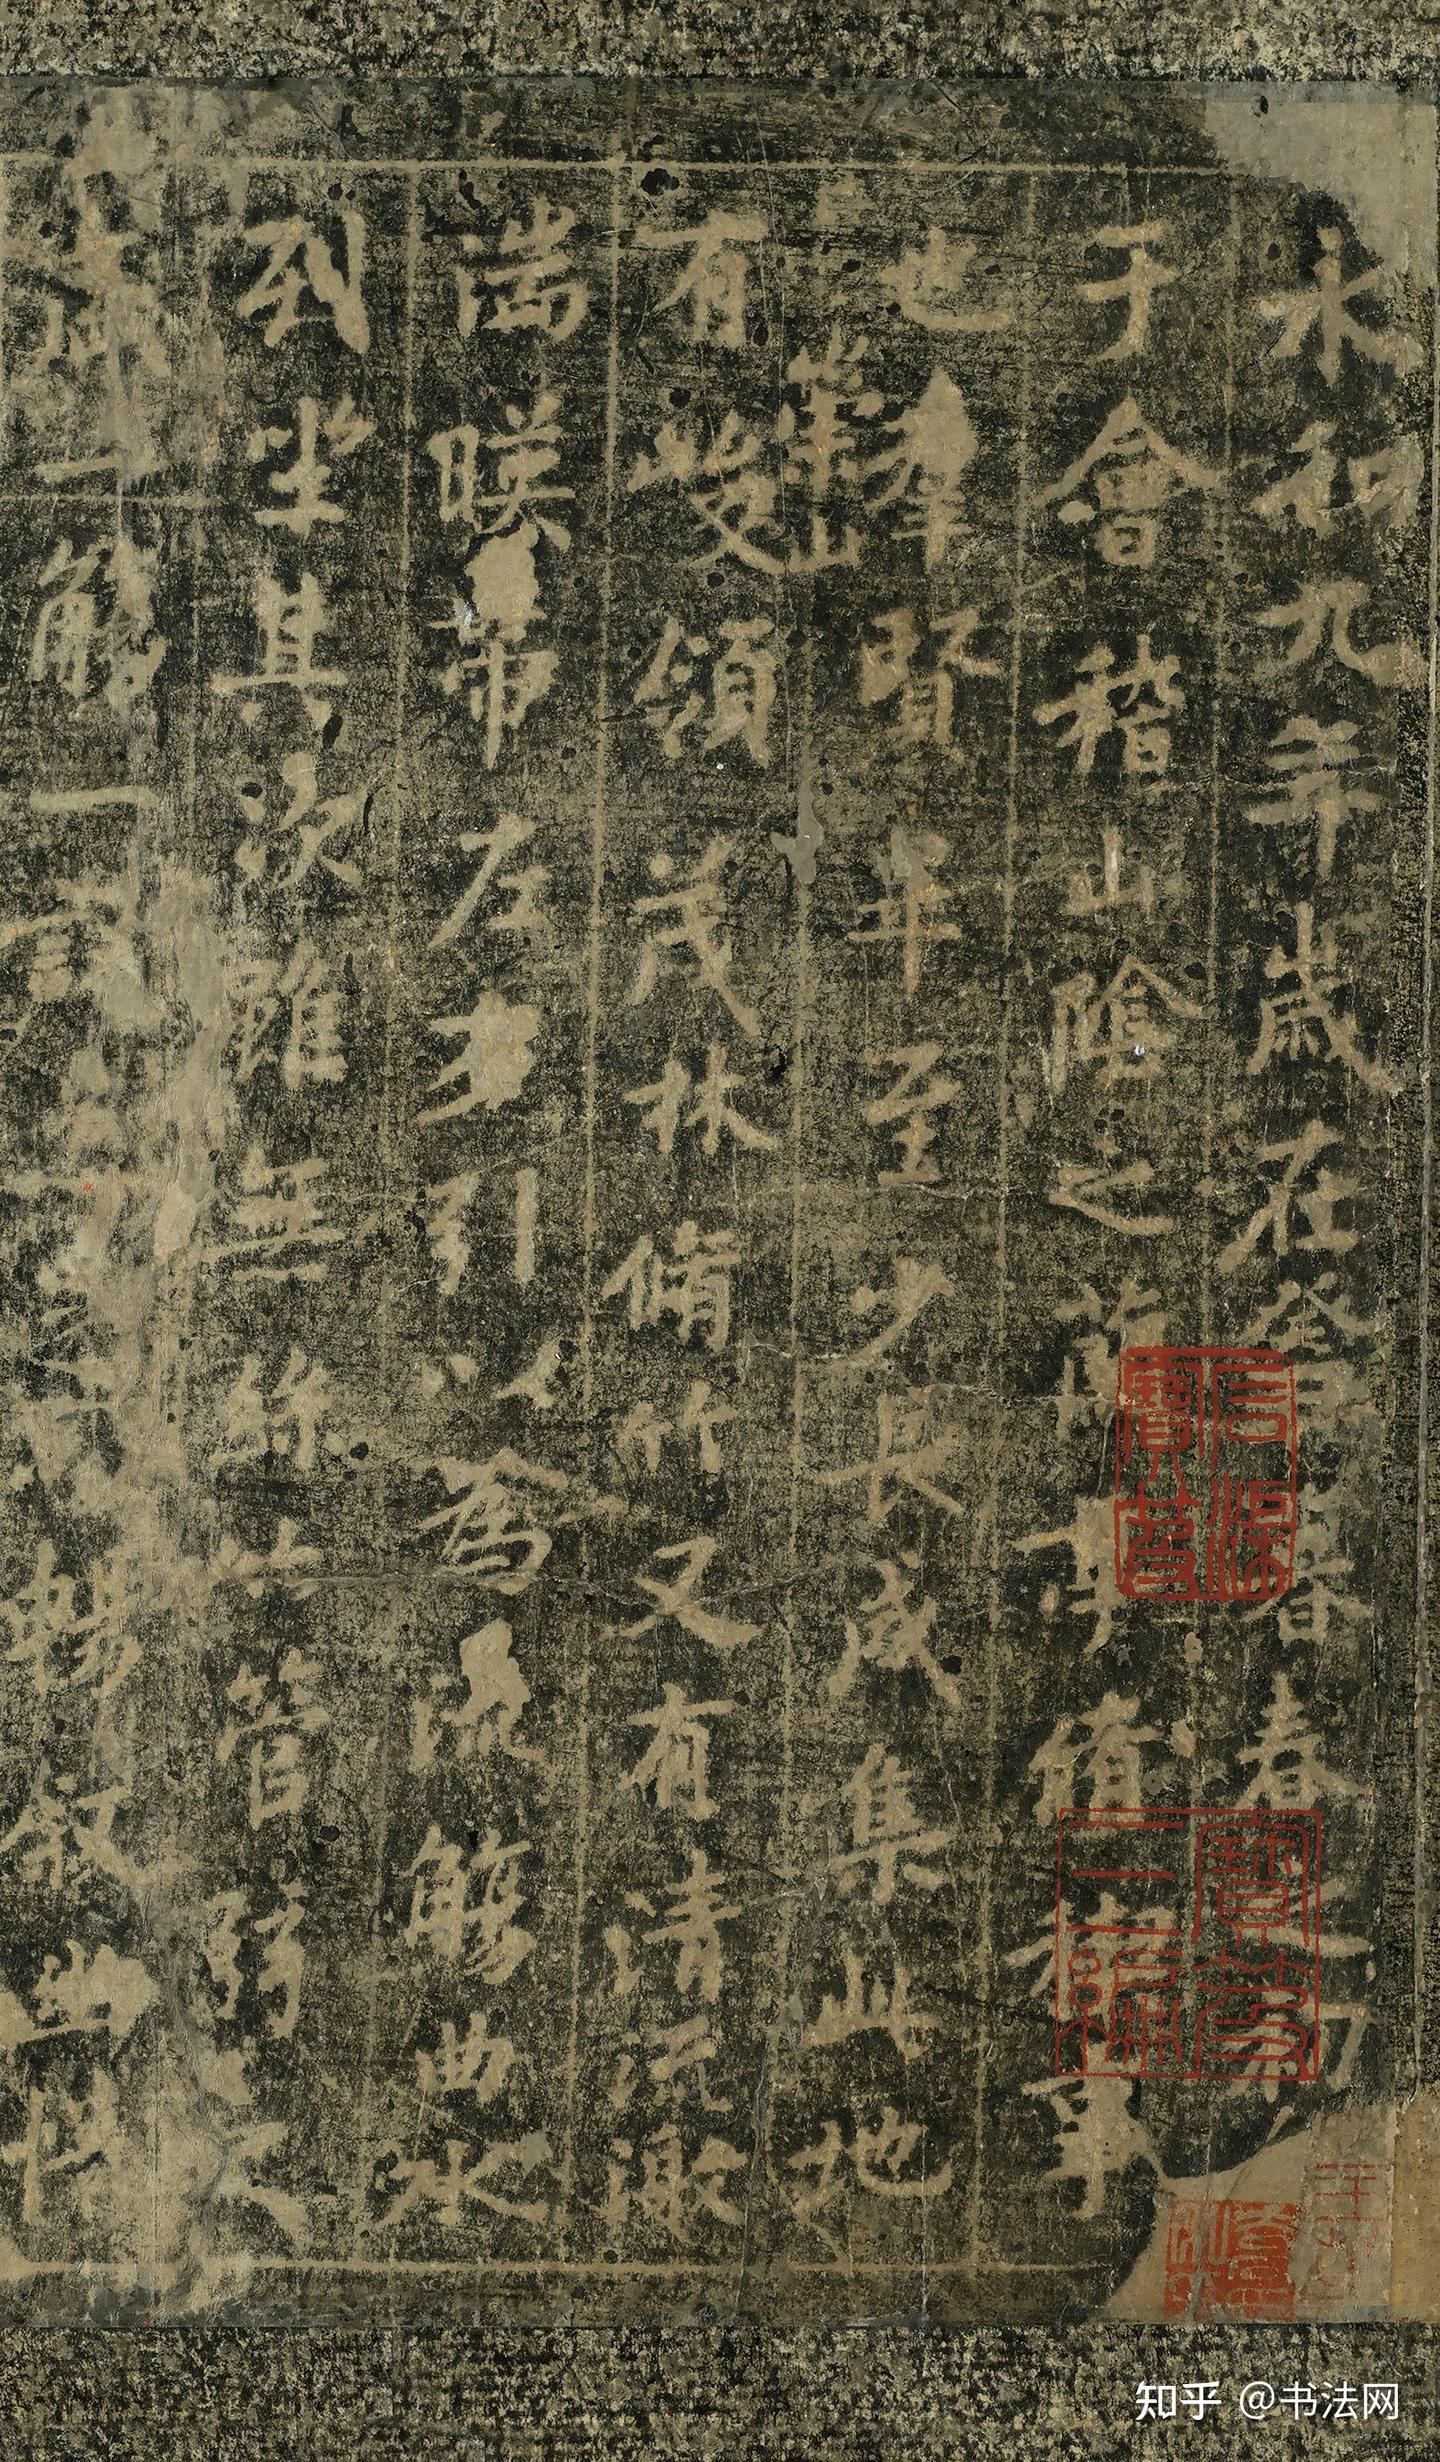 永和九年歲在癸丑暮春之初
于會稽山陰之蘭亭脩稧事
也羣賢畢至少長咸集此地
有崇山
峻領茂林脩竹又有清流激
湍暎帶左右引以為流觴曲水
列坐其次雖無絲竹管弦之
盛一觴一詠亦足以暢敘幽情
信漢寶蔘
知乎 @书法网